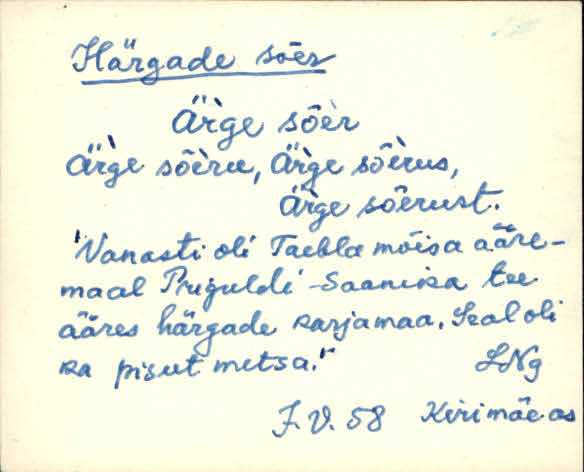 Härgade sõer
Ärge sõer
Ärge sõeru, Ärge sõerus,
Ärge sõerust.
"Vanasti oli Taebla mõisa ääre-
maal Priguldi-Saanika tee
ääres härgade karjamaa. Seal oli
ka pisut metsa." LNg
J.V. 58 Kirimäe as